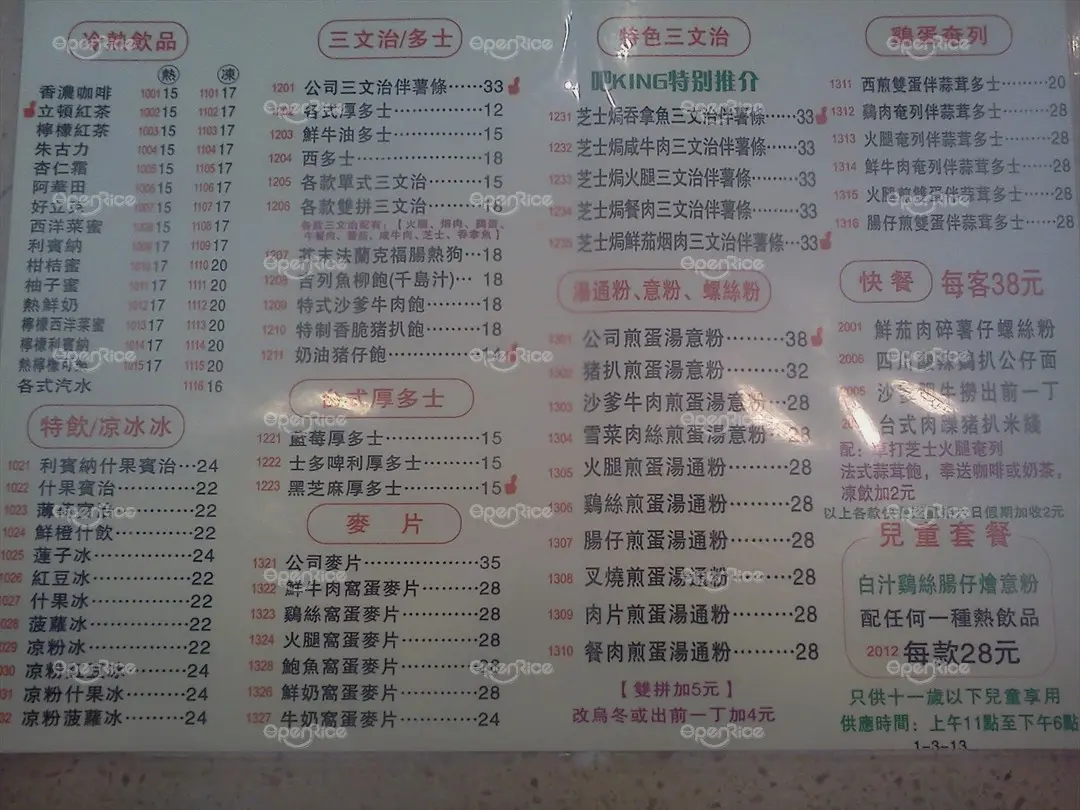 冷熱飲品
熱 凍
香濃咖啡 1001 15 1101 17
立頓紅茶 1002 15 1102 17
檸檬紅茶 1003 15 1103 17
朱古力 1004 15 1104 17
杏仁霜 1005 15 1105 17
阿華田 1006 15 1106 17
好立克 1007 15 1107 17
西洋菜蜜 1008 15 1108 17
利賓納 1009 17 1109 17
柑桔蜜 1010 17 1110 20
柚子蜜 1011 17 1111 20
熱鮮奶 1012 17 1112 20
檸檬西洋菜蜜 1013 17 1113 20
檸檬利賓納 1014 17 1114 20
熱檸檬可樂 1015 17 1115 20
各式汽水 1116 16
特飲/凉冰冰
1021 利賓納什果賓治 24
1022 什果賓治 22
1023 薄荷賓治 22
1024 鮮橙什飲 22
1025 蓮子冰 24
1026 紅豆冰 22
1027 什果冰 22
028 菠蘿冰 22
029 凉粉冰 22
030 凉粉紅豆冰 24
031 凉粉什果冰 24
32 凉粉菠蘿冰 24
三文治/多士
1201 公司三文治伴薯條 33
1202 各式厚多士 12
1203 鮮牛油多士 15
1204 西多士 18
1205 各款單式三文治 15
1206 各款雙拼三文治 18
各款三文治配有:【火腿、烟肉、鷄蛋、
午餐肉、蕃茄、咸牛肉、芝士、吞拿魚】
1207 芥末法蘭克福腸熱狗 18
1208 吉列魚柳飽(千島汁) 18
1209 特式沙爹牛肉飽 18
1210 特制香脆豬扒飽 18
1211 奶油豬仔飽 14
台式厚多士
1221 藍莓厚多士 15
1222 士多啤利厚多士 15
1223 黑芝麻厚多士 15
麥片
1321 公司麥片 35
1322 鮮牛肉窩蛋麥片 28
1323 鷄絲窩蛋麥片 28
1324 火腿窩蛋麥片 28
1328 鮑魚窩蛋麥片 28
1326 鮮奶窩蛋麥片 28
1327 牛奶窩蛋麥片 24
特色三文治
吧KING特别推介
1231 芝士焗吞拿魚三文治伴薯條 33
1232 芝士焗咸牛肉三文治伴薯條 33
1233 芝士焗火腿三文治伴薯條 33
1234 芝士焗餐肉三文治伴薯條 33
1235 芝士焗鮮茄烟肉三文治伴薯條 33
湯通粉、意粉、螺絲粉
1301 公司煎蛋湯意粉 38
1302 豬扒煎蛋湯意粉 32
1303 沙爹牛肉煎蛋湯意粉 28
1304 雪菜肉絲煎蛋湯通粉 28
1305 火腿煎蛋湯通粉 28
1306 鷄絲煎蛋湯通粉 28
1307 腸仔煎蛋湯通粉 28
1308 叉燒煎蛋湯通粉 28
1309 肉片煎蛋湯通粉 28
1310 餐肉煎蛋湯通粉 28
【雙拼加5元】
改烏冬或出前一丁加4元
鷄蛋奄列
1311 西煎雙蛋伴蒜茸多士 20
1312 鷄肉奄列伴蒜茸多士 28
1313 火腿奄列伴蒜茸多士 28
1314 鮮牛肉奄列伴蒜茸多士 28
1315 火腿煎雙蛋伴蒜茸多士 28
1316 腸仔煎雙蛋伴蒜茸多士 28
快餐 每客38元
2001 鮮茄肉碎薯仔螺絲粉
2006 四川 辣鷄扒公仔面
2005 沙爹 牛撈出前一丁
台式肉燥豬扒米綫
配: 打芝士火腿奄列
法式蒜茸飽，奉送咖啡或奶茶，
凍飲加2元
以上各款 日假期加收2元
兒童套餐
白汁鷄絲腸仔燴意粉
配任何一種熱飲品
2012 每款28元
只供十一歲以下兒童享用
供應時間：上午11點至下午6點
1-3-13